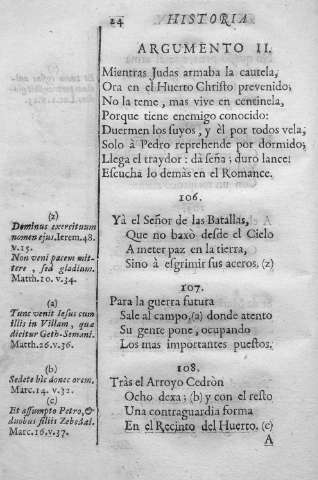 24 HISTORIA
ARGUMENTO II.
Mientras Judas armaba la cautela,
Ora en el Huerto Christo prevenido;
No la teme, mas vive en centinela,
Porque tiene enemigo conocido:
Duermen los suyos, y él por todos vela;
Solo à Pedro reprehende por dormido;
Llega el traydor: dà seña; duro lance!
Escucha lo demàs en el Romance.
106.
Yà el Señor de las Batallas,
Que no baxò desde el Cielo
A meter paz en la tierra,
Sino à esgrimir sus aceros. (z)
107.
Para la guerra futura
Sale al campo,(a) donde atento
Su gente pone, ocupando
Los mas importantes puestos.
108.
Tràs el Arroyo Cedròn
Ocho dexa; (b) y con el resto
Una contraguardia forma
En el Recinto del Huerto. (c)
A
(z)
Dominus exercituum
nomen ejus. Ierem. 48.
v. 15.
Non veni pacem mit-
tere, sed gladium.
Matth. 10. v. 34.
(a)
Tunc venit Iesus cum
illis in Villam, quæ
dicitur Geth-Semani.
Matth. 26. v. 36.
(b)
Sedete hîc donec orem.
Marc. 14. v. 32.
(c)
Et assumpto Petro, &
duobus filiis Zebedæi.
Marc. 16. v. 37.